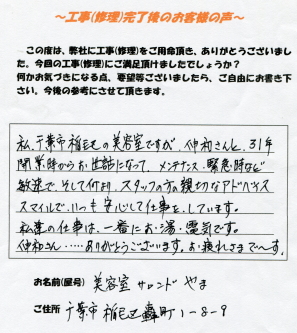 ～工事(修理)完了後のお客様の声～
この度は、弊社に工事(修理)をご用命頂き、ありがとうございまし
た。今回の工事(修理)にご満足頂けましたでしょうか？
何かお気づきになる点、要望等ございましたら、ご自由にお書き下
さい。今後の参考にさせて頂きます。
私、千葉市稲毛区の美容室ですが、伸和さんと、31年
開業時からお世話になって、メンテナンス、緊急時など
敏速で、そして何より、スタッフの方の親切なアドバイス
スマイルで、いつも安心して仕事を、しています。
私達の仕事は、一番にお湯・電気です。
伸和さん……ありがとうございます。お疲れさまで～す。
お名前(屋号) 美容室 サロンド やま
ご住所 千葉市稲毛区轟町1-8-9